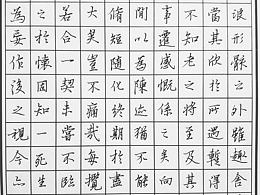 浪形骸之外雖趣舍
當其欣於所遇暫得
不知老之將至及其
事遷感慨係之矣向
閒以為陳迹猶不能
脩短隨化終期於盡
大矣豈不痛哉每攬
若合一契未嘗不臨
之於懷固知一死生
為妄作後之視今亦